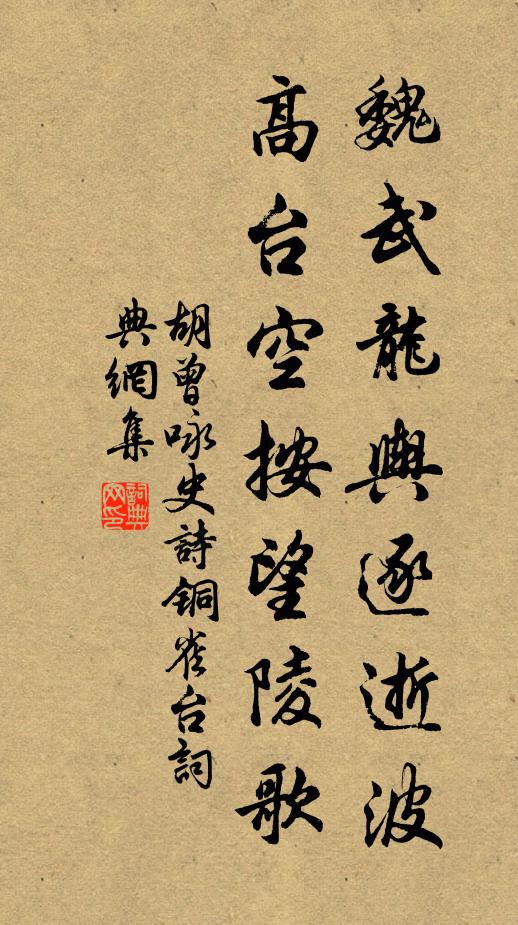 魏武龍輿逐逝波
高台空按望陵歌
胡曾咏史詩銅雀台詞
典網集
詞典
网印